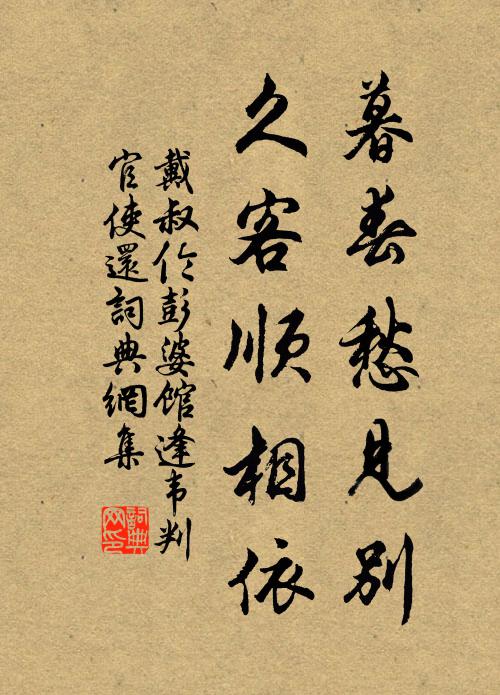 暮春愁見別
久客順相依
戴叔伦彭婆館逢韦判
官使還詞典網集
詞典
网印